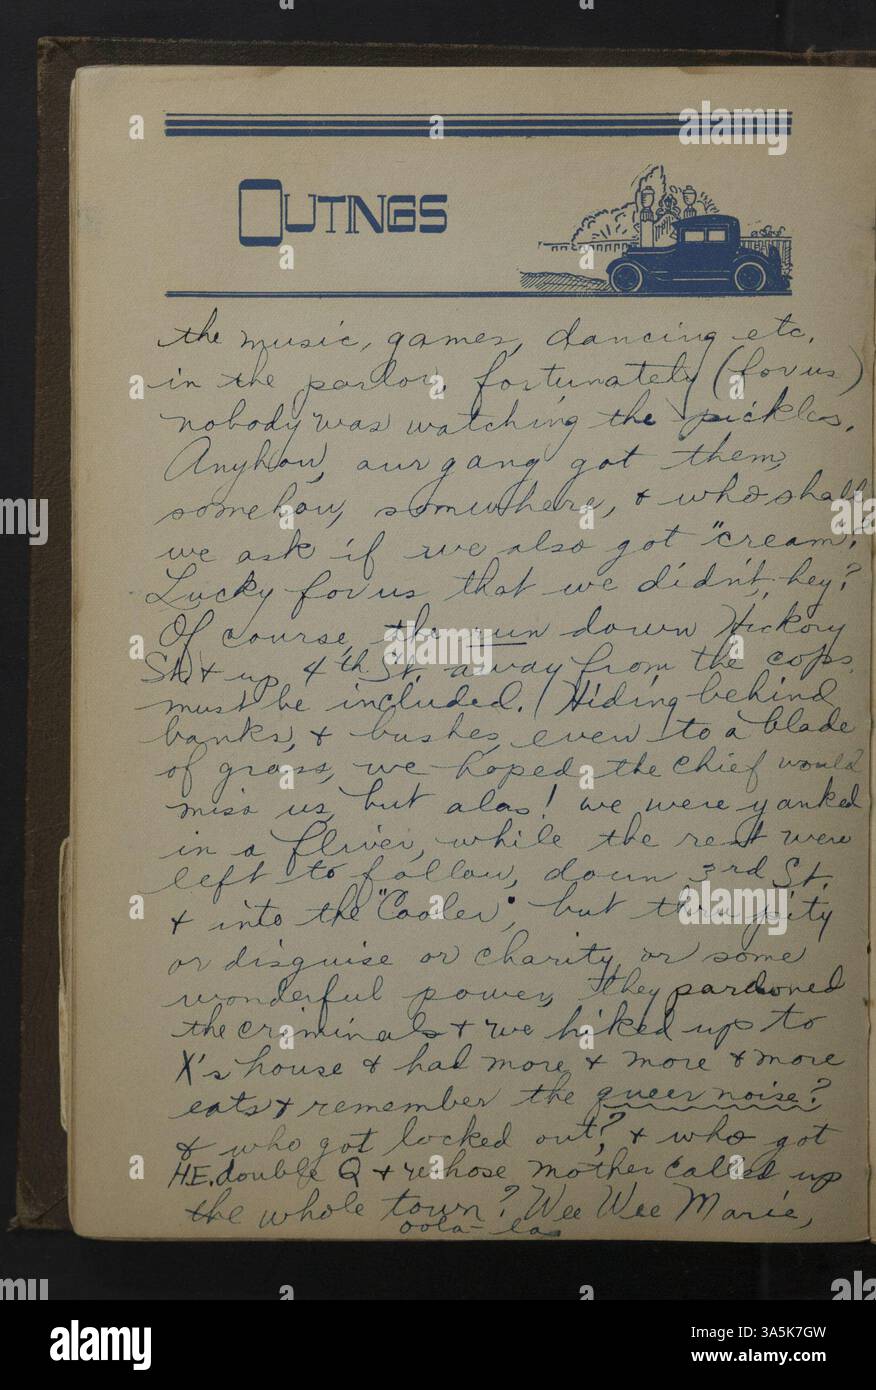 OUTINGS
the music, games, dancing etc.
in the parlor, fortunately (for us)
nobody was watching the pickles.
Anyhow, our gang got them,
somehow, somewhere, & who shall
we ask if we also got "cream?
Lucky for us that we didn't, hey?
Of course, the run down Hickory
St. & up 4th St. away from the cops.
must be included. Hiding behind
banks, & bushes, even to a blade
of grass, we hoped the chief would
miss us, but alas! we were yanked
in a fliver, while the rest were
left to follow, down 3rd St.
& into the "Cooler", but thru pity
or disguise or charity, or some
wonderful power, they pardoned
the criminals & we hiked up to
X's house & had more & more & more
eats & remember the queer noise?
& who got locked out? & who got
HE. double Q & whose mother called up
the whole town? Wee Wee Marie,
oola-la
alamy
Image ID: 3A5K7GW
www.alamy.com